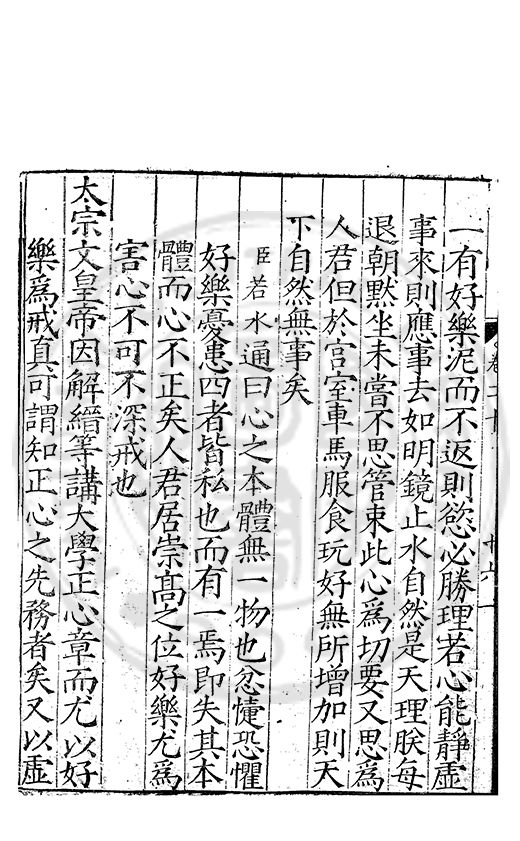 卷二十
廿六
一有好樂泥而不返則慾必勝理若心能靜虛
事來則應事去如明鏡止水自然是天理朕每
退朝默坐未嘗不思管束此心為切要又思為
人君但於宫室車馬服食玩好無所增加則天
下自然無事矣
臣若水通曰心之本體無一物也忿懥恐懼
好樂憂患四者皆私也而有一焉即失其本
體而心不正矣人君居崇髙之位好樂尤為
害心不可不深戒也
太宗文皇帝因解縉等講大學正心章而尤以好
樂為戒真可謂知正心之先務者矣又以虛